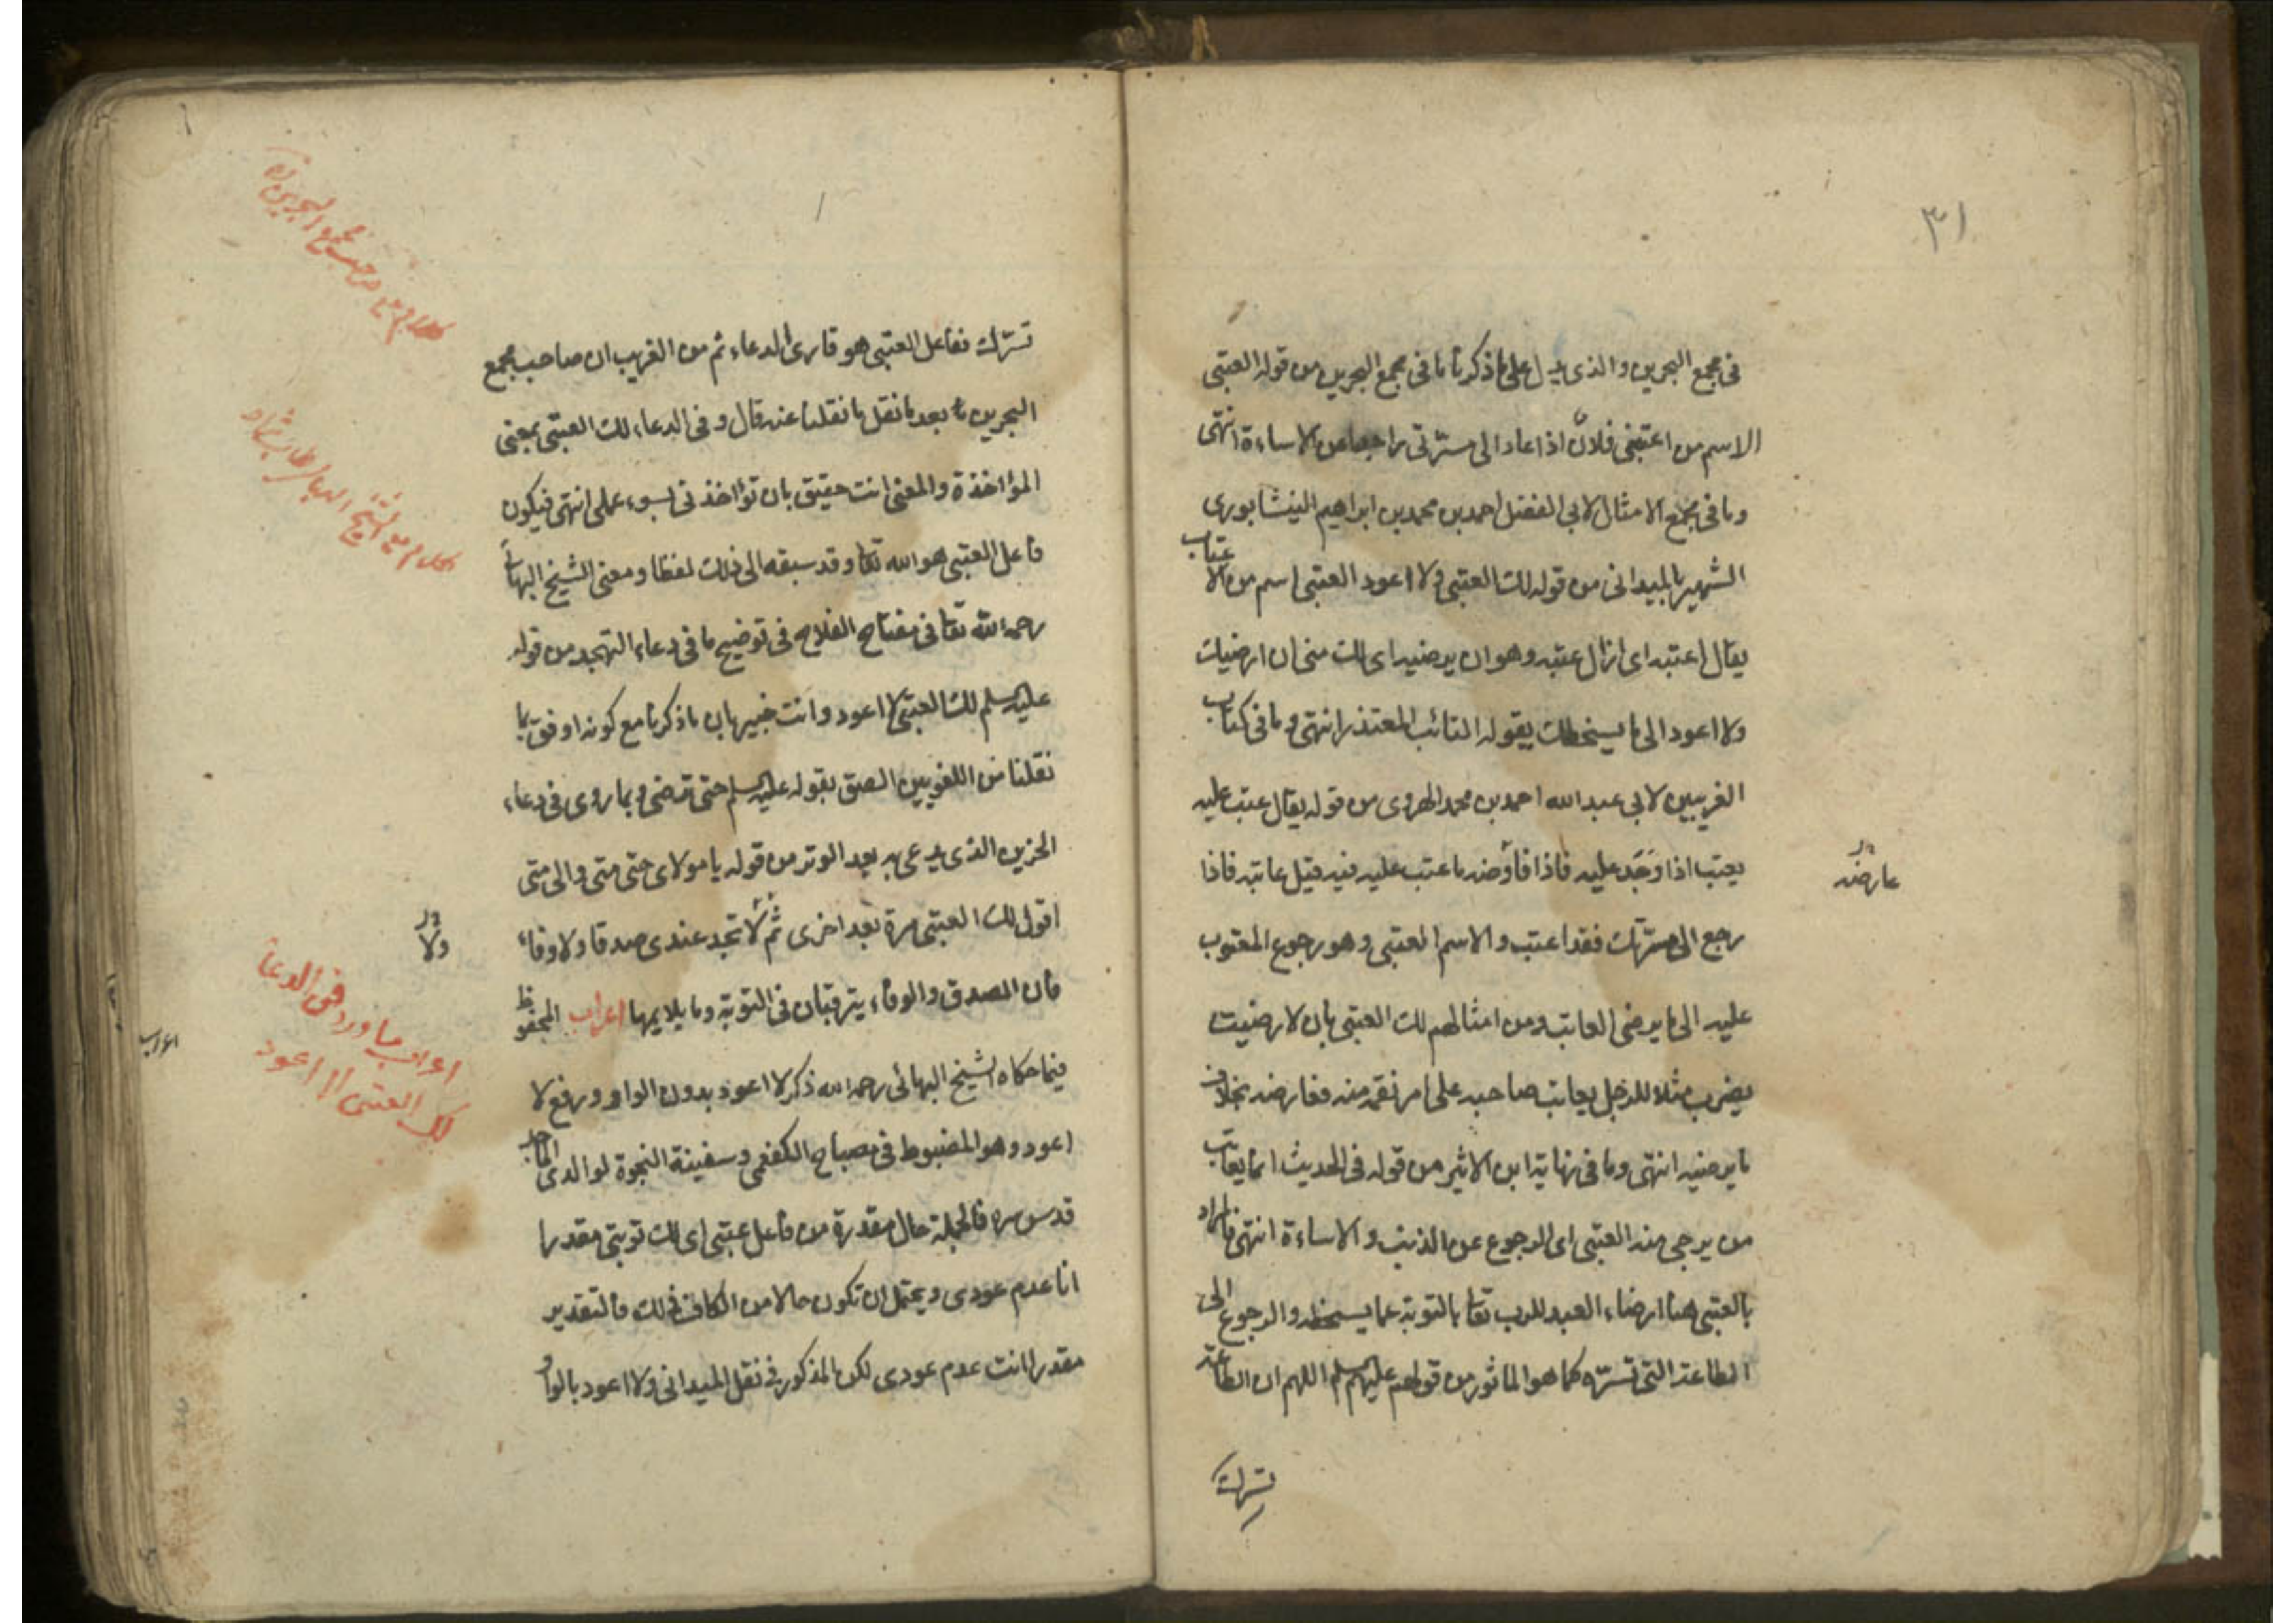 ٣١
فى مجمع البحرين والذى يدل على ما ذكرنا ما فى مجمع البحرين من قوله العتبى
الاسم من اعتبنى فلانٌ اذا عاد الى مسرّتى راجعا عن الاساءة انتهى
وما فى مجمع الامثال لابى الفضل احمد بن محمد بن ابراهيم النيشابورى
الشهير بالميدانى من قوله لك العتبى ولا اعود العتبى اسم من الاعتاب
يقال اعتبه اى ازال عتبه وهو ان يرضيه اى لك منى ان ارضيك
ولا اعود الى ما يسخطك يقوله التائب المعتذر انتهى وما فى كتاب
الغريبين لابى عبد الله احمد بن محمد الهروى من قوله يقال عتب عليه
يعتب اذا وَجَد عليه فاذا فاوضه ما عتب عليه فيه قيل عاتبه فاذا
عارضه
رجع الى مسرّتك فقد اعتب والاسم العتبى وهو رجوع المعتوب
عليه الى ما يرضى العاتب ومن امثالهم لك العتبى بان لا رضيت
يضرب مثلا للرجل يعاتب صاحبه على امر نقمه منه فعارضه بخلاف
ما يرضيه انتهى وما فى نهاية ابن الاثير من قوله فى الحديث انما يعاتب
من يرجى منه العتبى اى الرجوع عن الذنب والاساءة انتهى فالمراد
بالعتبى هنا ارضاء العبد للرب تعا بالتوبة عما يسخطه والرجوع الى
الطاعة التى تسرّه كما هو الماثور من قولهم عليهم السلم اللهم ان الطاعة
تسرك
تسرّك ففاعل العتبى هو قارى الدعاء ثم من الغريب ان صاحب مجمع
البحرين بعد ما نقل ما نقلنا عنه قال وفى الدعاء لك العتبى بمعنى
المؤاخذة والمعنى انت حقيق بان تؤاخذنى بسوء عملى انتهى فيكون
فاعل العتبى هو الله تعا وقد سبقه الى ذلك لفظا ومعنى الشيخ البهائى
رحمه الله تعا فى مفتاح الفلاح فى توضيح ما فى دعاء التهجد من قوله
عليه السلم لك العتبى لا اعود وانت خبير بان ما ذكرنا مع كونه اوفق بما
نقلنا من اللغويين الصق بقوله عليه السلم حتى ترضى وبما روى فى دعاء
الحزين الذى يدعى به بعد الوتر من قوله يا مولاى حتى متى والى متى
اقول لك العتبى مرة بعد اخرى ثم لا تجد عندى صدقا ولا وفاء
ولا
فان الصدق والوفاء يترقبان فى التوبة وما يلايمها اعراب المحفوظ
اعراب
فيما حكاه الشيخ البهائى رحمه الله ذكر لا اعود بدون الواو ورفع لا
اعود وهو المضبوط فى مصباح الكفعمى وسفينة النجوة لوالدى الماجد
قدس سره فالجملة حال مقدرة من فاعل عتبى اى لك توبتى مقدرا
انا عدم عودى ويحتمل ان تكون حالا من الكاف فى لك فالتقدير
مقدرا انت عدم عودى لكن المذكور فى نقل الميدانى ولا اعود بالواو
كلام مع صاحب مجمع البحرين
كلام مع الشيخ البهائى
اعراب ما ورد فى الدعا
لك العتبى لا اعود